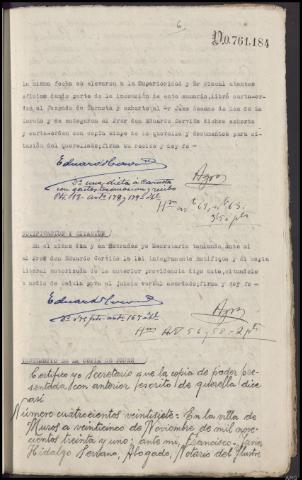 6
N.0.761.184
La misma fecha se elevaron a la Superioridad y Sr Fiscal atentos
oficios dando parte de la incoación de este sumario, libró carta-or-
den al Juzgado de Carnota y exhorto al Sr Juez Decano de los de La
Coruña y se entregaron al Pror don Eduardo Cerviño dichos exhorto
y carta-orden con copia simple de la querella y documentos para ci-
tación del Querellado, firma su recibo y doy fe -
Eduardo Cerviño
Agra
NOTIFICACION Y CITACION
En el mismo día y en Estrados yo Secretario teniendo ante mi
al Pror don Eduardo Cerviño le leí integramente notifiqué y di copia
literal autorizada de la anterior providencia dijo cite, citandole
a medio de cedula para el juicio verbal acordado, firma y doy fe -
Eduardo Cerviño
Agra
TESTIMONIO DE LA COPIA DE PODER
Certifico yo Secretario que la copia de poder pre-
sentada con anterior escrito de querella dice
asi
Numero cuatrocientos veintisiete = En la villa de
Muros a veinticinco de Noviembre de mil nove-
cientos treinta y uno; ante mi, Francisco-Javier
Hidalgo Serrano, Abogado, Notario del Ilustre